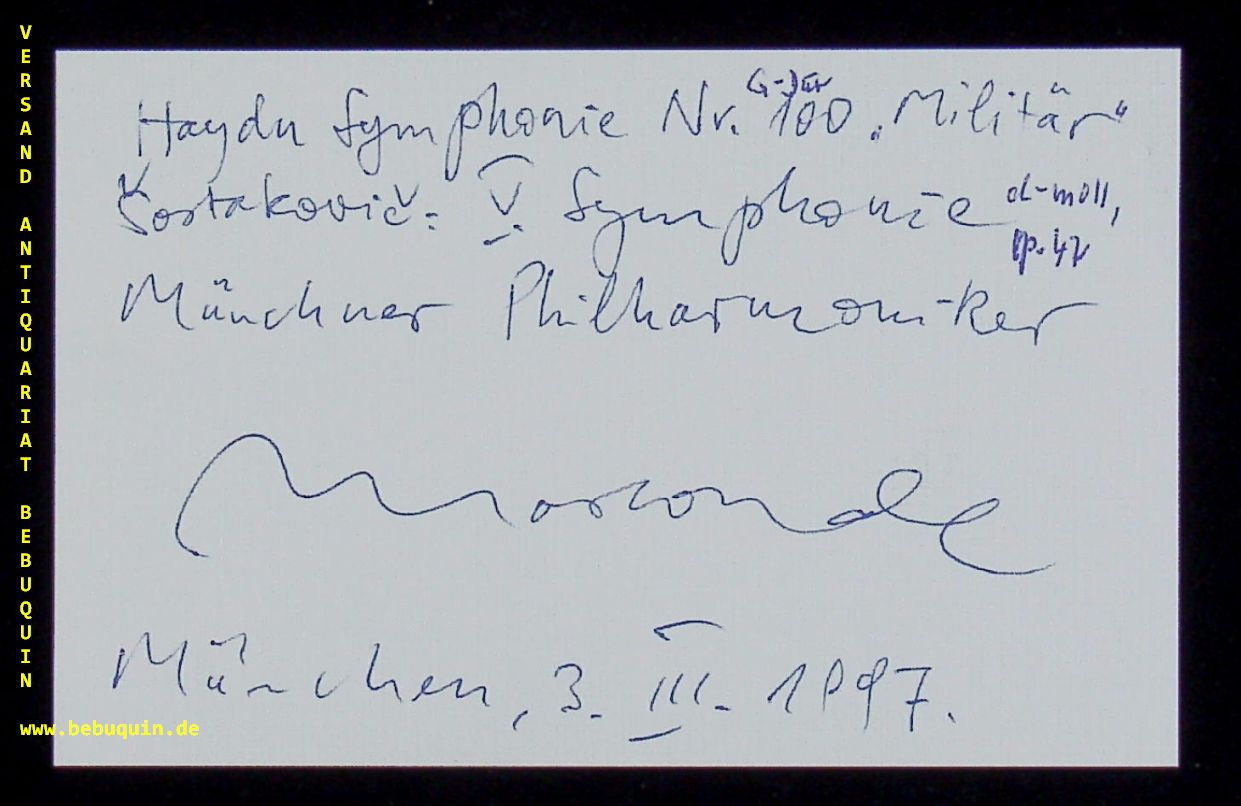 VERSAND ANTIQUARIAT BEBUQUIN
www.bebuquin.de
G-Dur
Haydn Symphonie Nr. 100 „Militär“
Šostakovič: V. Symphonie d-moll,
op. 47
Münchner Philharmoniker
München, 3. III. 1997.